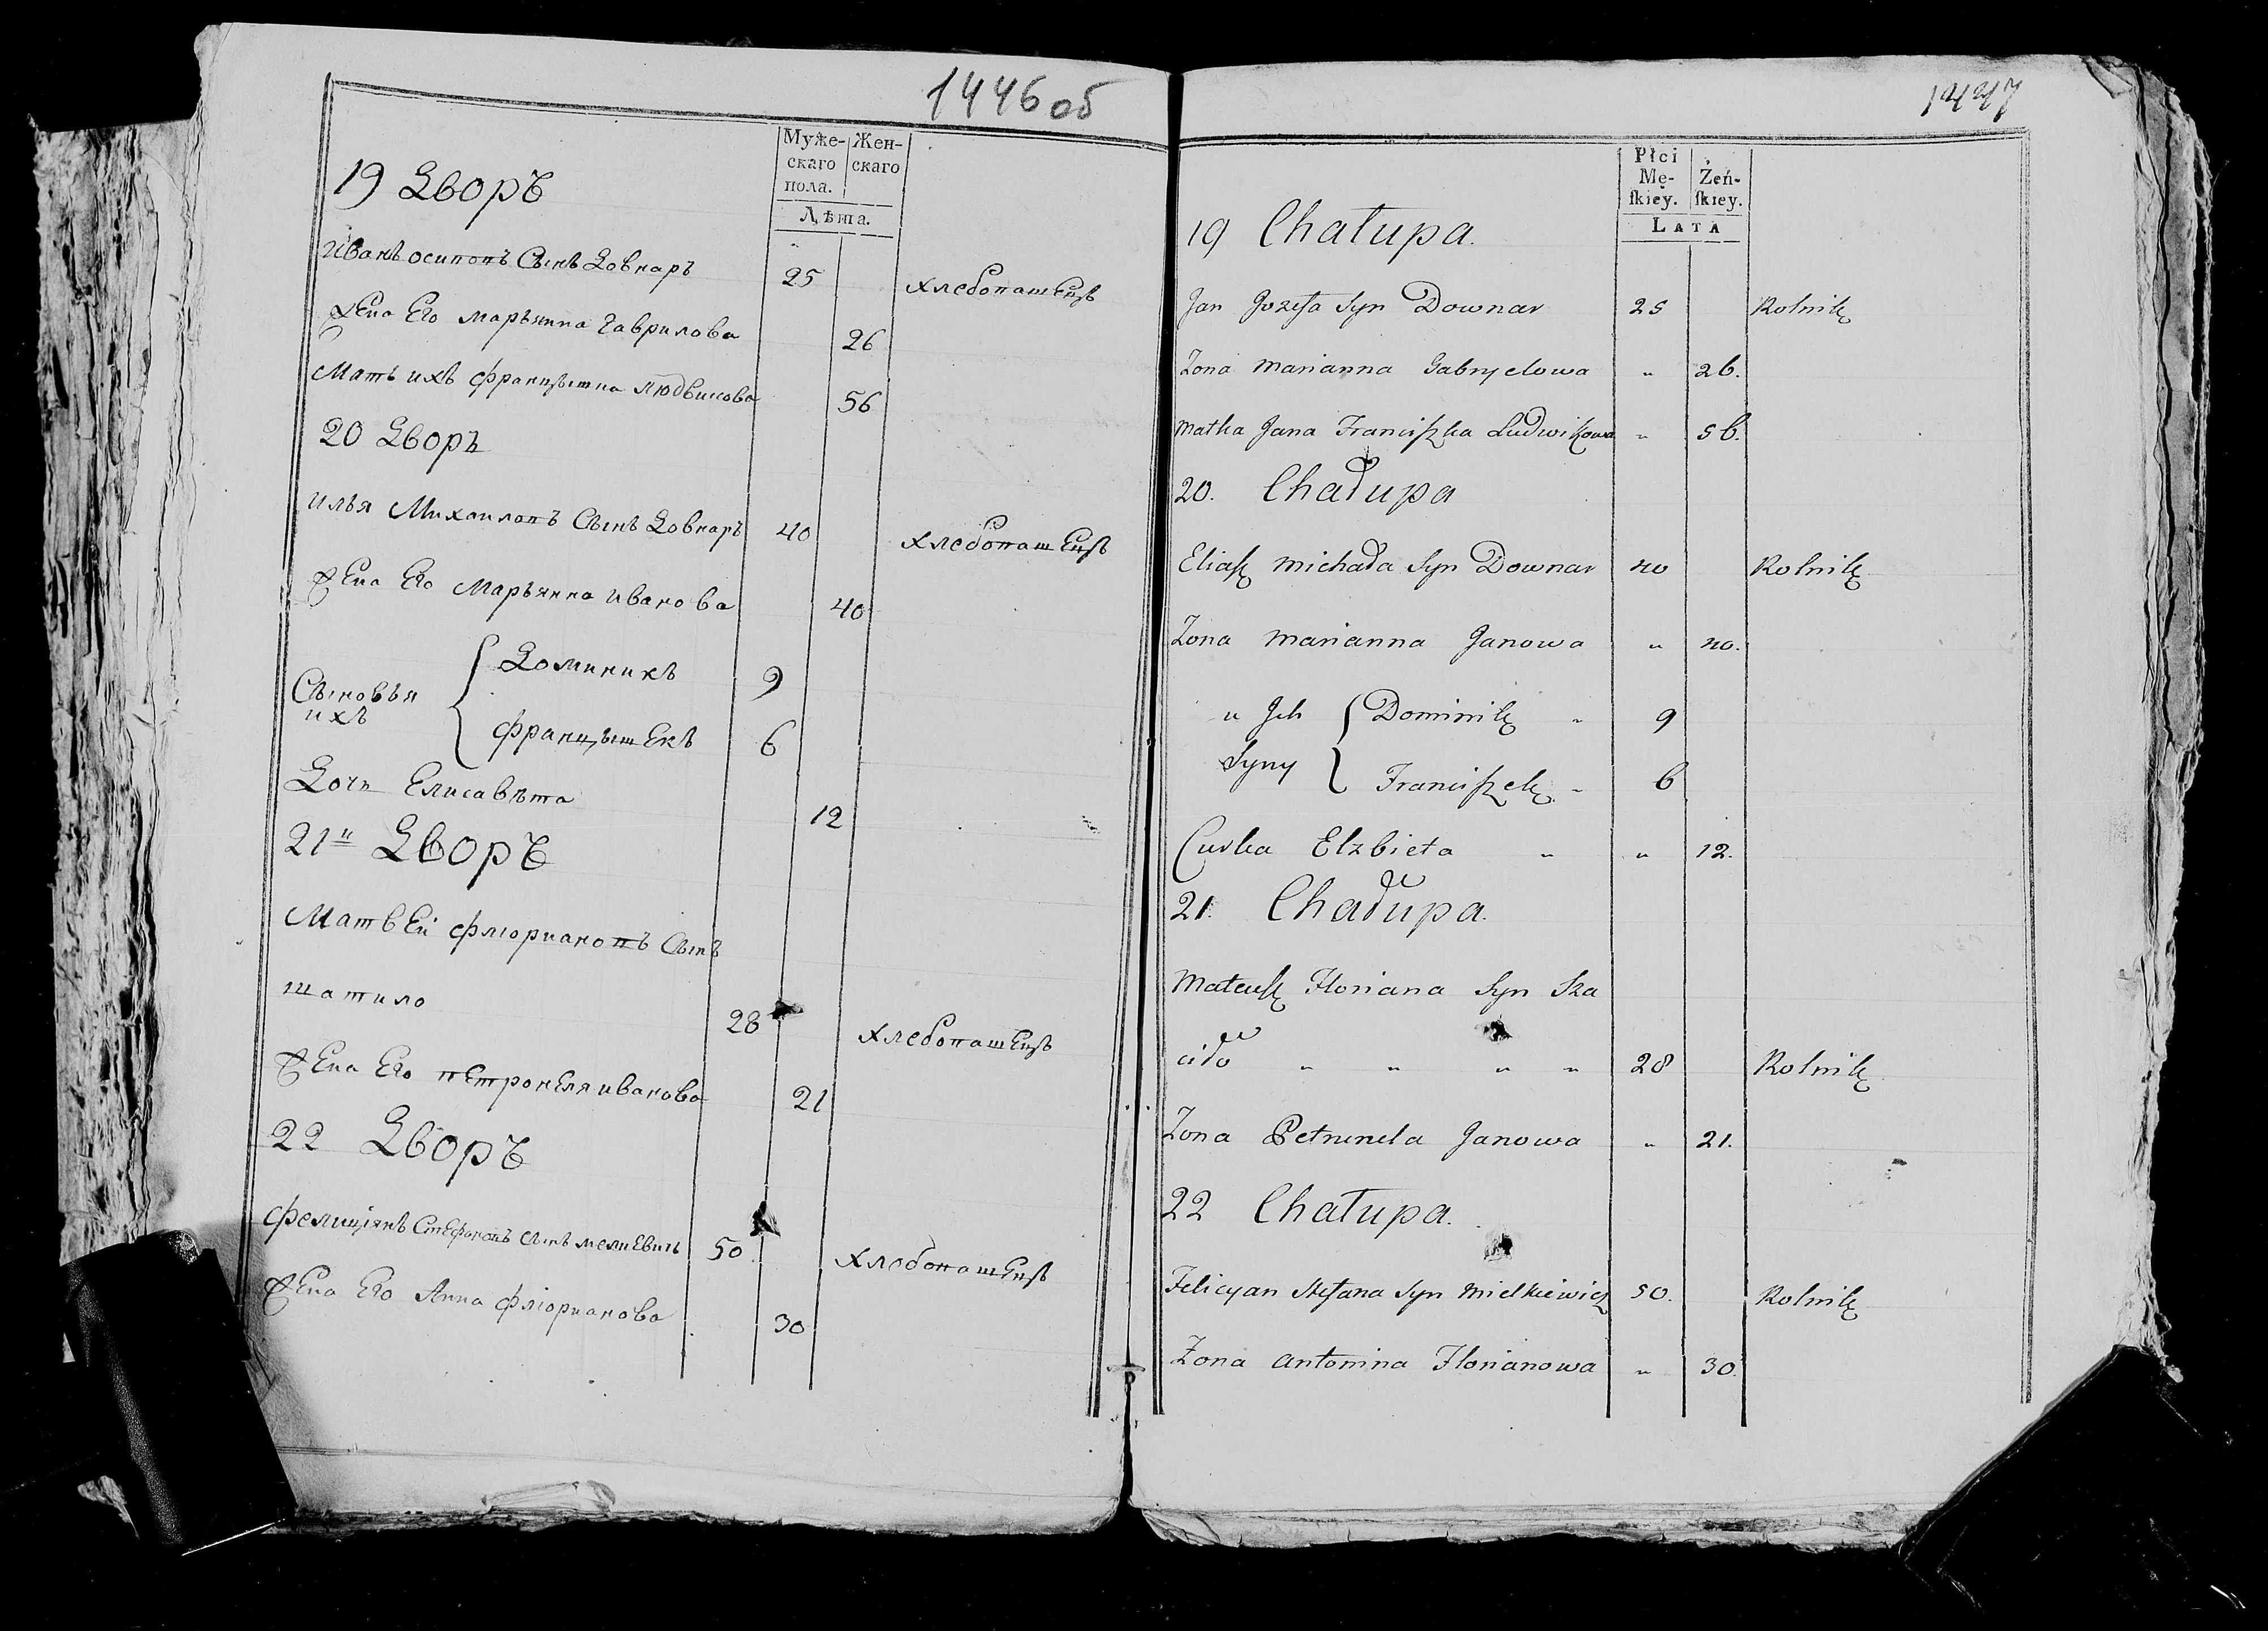 1446 об
Муже-
скаго
пола.
Жен-
скаго
Лѣта.
19 Дворъ
Иванъ осиповъ Сынъ Довнаръ 25 хлебопашецъ
Жена Его марьянна гаврилова 26
Мать ихъ францышка людвикова 56
20 Дворъ
илья Михаиловъ Сынъ Довнаръ 40 хлебопашецъ
Жена Его Марьянна иванова 40
Сыновья ихъ { Доминикъ 9
францышекъ 6
Дочь Елисавѣта 12
21й Дворъ
Матвей флюриановъ Сынъ
шатило 28 хлебопашецъ
Жена Его петронеля иванова 21
22 Дворъ
фелиціянъ Стефановъ Сынъ мелкевичь 50 хлебопашецъ
Жена Его Анна флюрианова 30
1447
Płci
Mę-
ſkiey.
Żeń-
ſkiey.
LATA
19 Chałupa.
Jan Jozefa Syn Downar 25 Rolnik
Zona Marianna Gabryelowa " 26.
Matka Jana Franciſzka Ludwikowa " 56.
20. Chałupa
Eliaſz Michała Syn Downar 40 Rolnik
Zona Marianna Janowa " 40.
u Jch { Dominik " 9
Syny Franciſzek " 6
Curka Elzbieta " " 12.
21. Chałupa.
Mateuſz Floriana Syn Sza
ciło " " " " 28 Rolnik
Zona Petrunela Janowa " 21.
22 Chałupa.
Felicyan Stefana Syn Mielkiewicz 50. Rolnik
Zona Antonina Florianowa " 30.